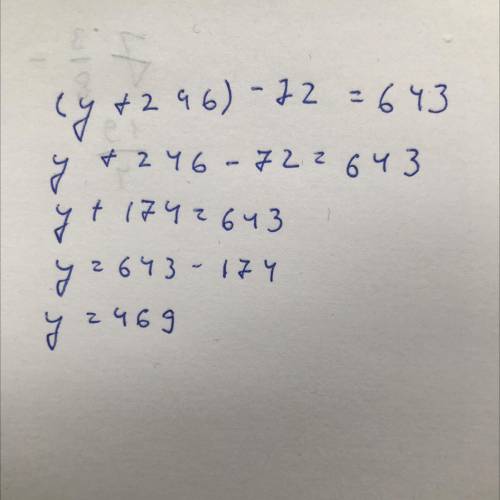 (y + 246) - 72 = 643
y + 246 - 72 = 643
y + 174 = 643
y = 643 - 174
y = 469